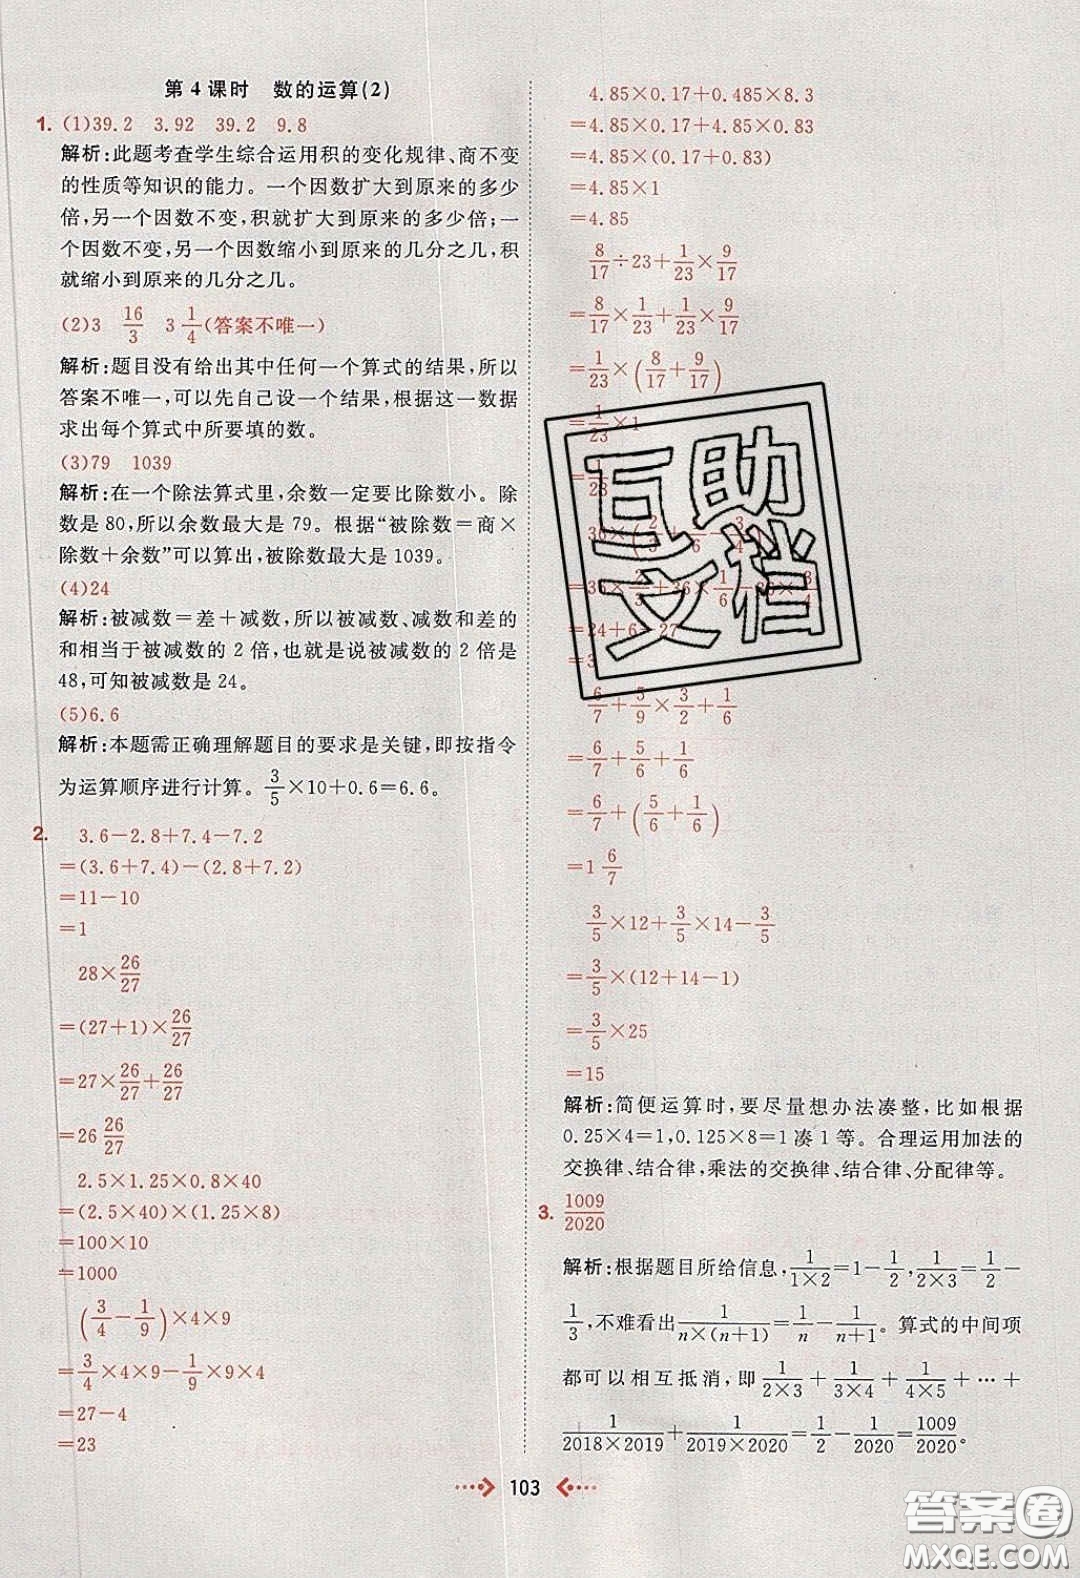 第4课时　数的运算(2)
1. (1)39.2　3.92　39.2　9.8
解析:此题考查学生综合运用积的变化规律、商不变
的性质等知识的能力。一个因数扩大到原来的多少
倍,另一个因数不变,积就扩大到原来的多少倍;一
个因数不变,另一个因数缩小到原来的几分之几,积
就缩小到原来的几分之几。
(2)3　16/3　3 1/4(答案不唯一)
解析:题目没有给出其中任何一个算式的结果,所以
答案不唯一,可以先自己设一个结果,根据这一数据
求出每个算式中所要填的数。
(3)79　1039
解析:在一个除法算式里,余数一定要比除数小。除
数是80,所以余数最大是79。根据“被除数=商×
除数+余数”可以算出,被除数最大是1039。
(4)24
解析:被减数=差+减数,所以被减数、减数和差的
和相当于被减数的2倍,也就是说被减数的2倍是
48,可知被减数是24。
(5)6.6
解析:本题需正确理解题目的要求是关键,即按指令
为运算顺序进行计算。3/5×10+0.6=6.6。
2. 3.6-2.8+7.4-7.2
=(3.6+7.4)-(2.8+7.2)
=11-10
=1
28×26/27
=(27+1)×26/27
=27×26/27+26/27
=26 26/27
2.5×1.25×0.8×40
=(2.5×40)×(1.25×8)
=100×10
=1000
(3/4-1/9)×4×9
=3/4×4×9-1/9×9×4
=27-4
=23
4.85×0.17+0.485×8.3
=4.85×0.17+4.85×0.83
=4.85×(0.17+0.83)
=4.85×1
=4.85
8/17÷23+1/23×9/17
=8/17×1/23+1/23×9/17
=1/23×(8/17+9/17)
=1/23×1
=1/23
36×(2/3+1/6-3/4)
=36×2/3+36×1/6-36×3/4
=24+6-27
=3
6/7+5/9×3/2+1/6
=6/7+5/6+1/6
=6/7+(5/6+1/6)
=1 6/7
3/5×12+3/5×14-3/5
=3/5×(12+14-1)
=3/5×25
=15
解析:简便运算时,要尽量想办法凑整,比如根据
0.25×4=1,0.125×8=1凑1等。合理运用加法的
交换律、结合律,乘法的交换律、结合律、分配律等。
3. 1009/2020
解析:根据题目所给信息,1/(1×2)=1-1/2,1/(2×3)=1/2-
1/3,不难看出1/(n×(n+1))=1/n-1/(n+1)。算式的中间项
都可以相互抵消,即1/(2×3)+1/(3×4)+1/(4×5)+…+
1/(2018×2019)+1/(2019×2020)=1/2-1/2020=1009/2020。
103
互助
文档
答案圈
MXQE.COM